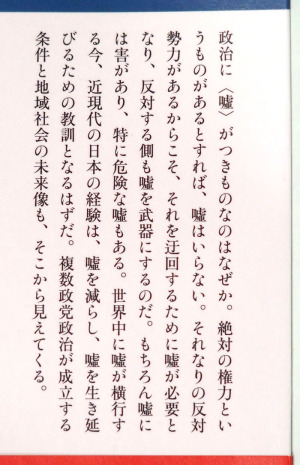 政治に〈嘘〉がつきものなのはなぜか。絶対の権力とい
うものがあるとすれば、嘘はいらない。それなりの反対
勢力があるからこそ、それを迂回するために嘘が必要と
なり、反対する側も嘘を武器にするのだ。もちろん嘘に
は害があり、特に危険な嘘もある。世界中に嘘が横行す
る今、近現代の日本の経験は、嘘を減らし、嘘を生き延
びるための教訓となるはずだ。複数政党政治が成立する
条件と地域社会の未来像も、そこから見えてくる。